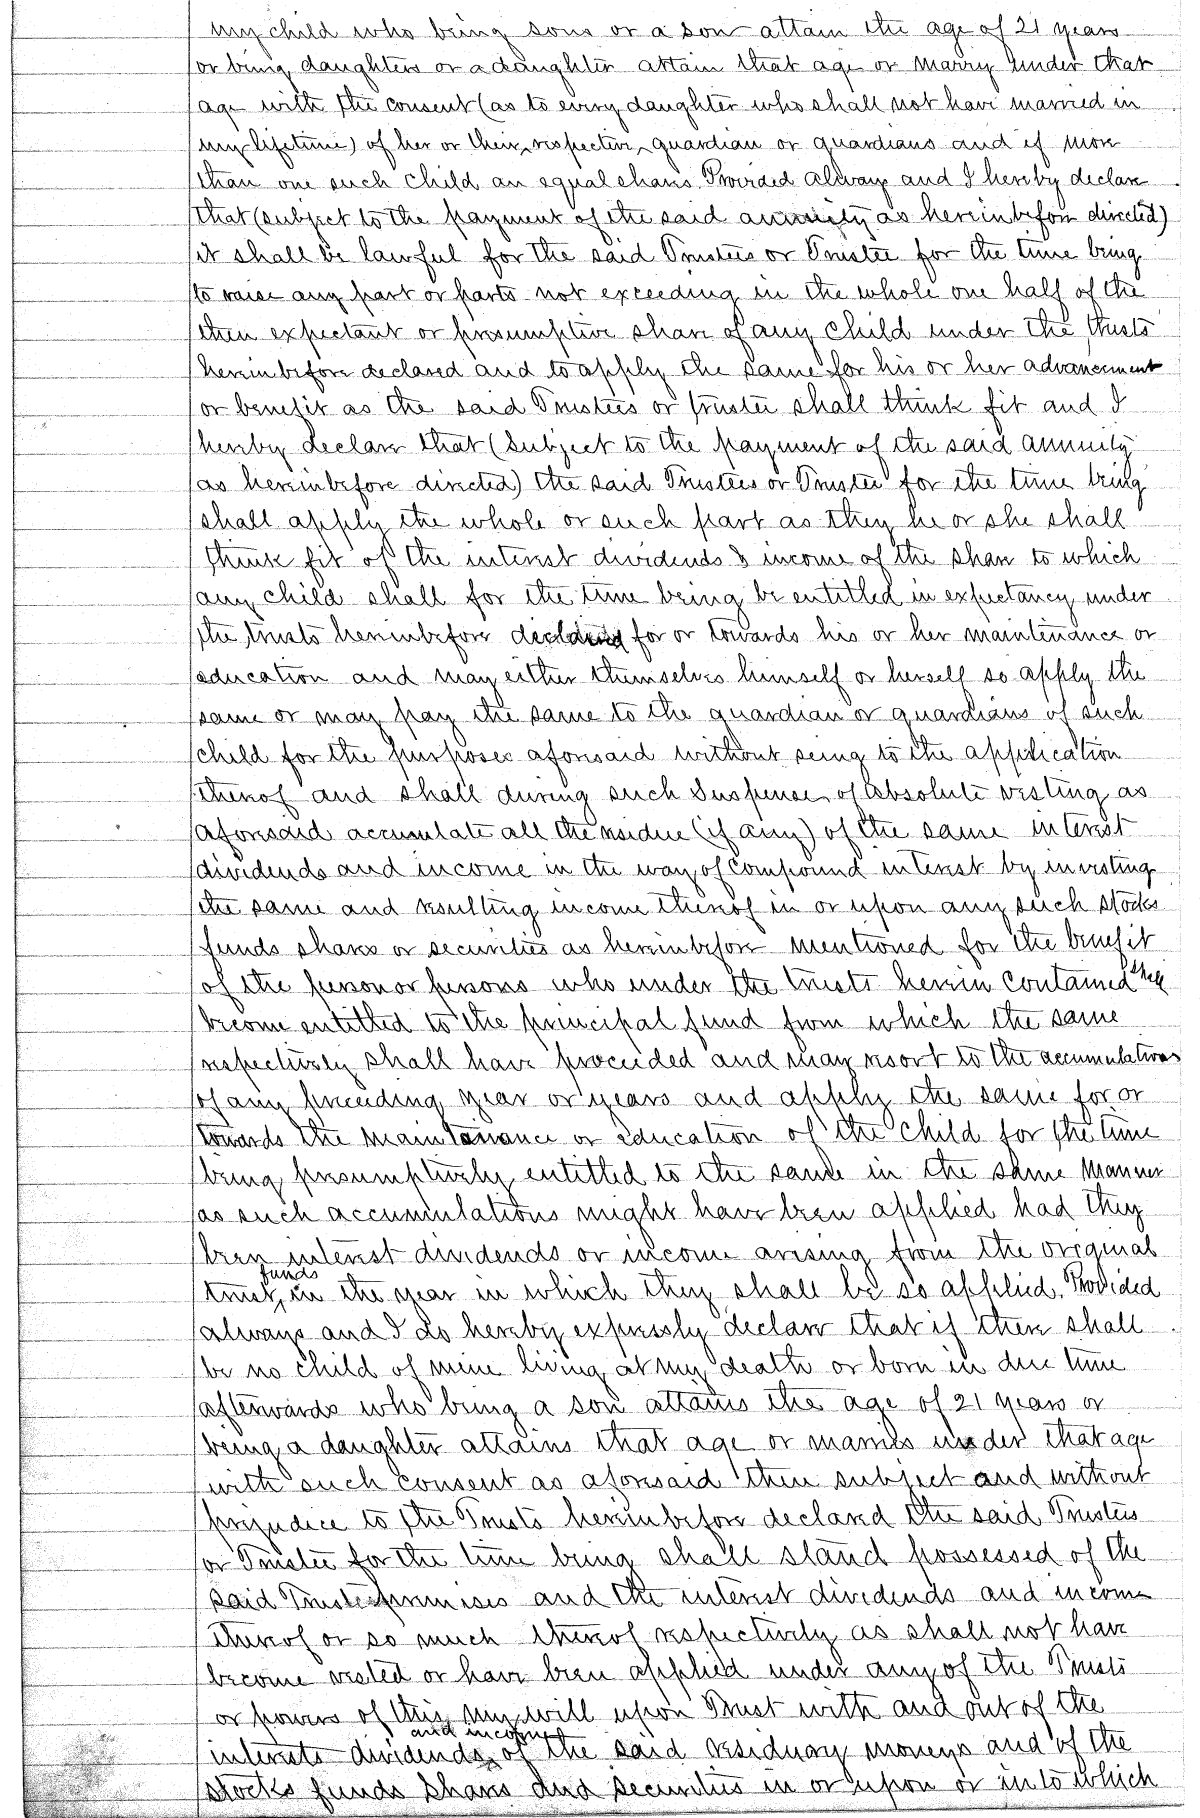 my child who being sons or a son attain the age of 21 years
or being daughters or a daughter attain that age or marry under that
age with the consent (as to every daughter who shall not have married in
my lifetime) of her or their respective guardian or guardians and if more
than one such child an equal share. Provided always and I hereby declare
that (subject to the payment of the said annuity as hereinbefore directed)
it shall be lawful for the said Trustees or Trustee for the time being
to raise any part or parts not exceeding in the whole one half of the
then expectant or presumptive share of any child under the trusts
hereinbefore declared and to apply the same for his or her advancement
or benefit as the said Trustees or trustee shall think fit and I
hereby declare that (subject to the payment of the said annuity
as hereinbefore directed) the said Trustees or Trustee for the time being
shall apply the whole or such part as they he or she shall
think fit of the interest dividends & income of the share to which
any child shall for the time being be entitled in expectancy under
the trusts hereinbefore for or towards his or her maintenance or
education and may either themselves himself or herself so apply the
same or may pay the same to the guardian or guardians of such
child for the purposes aforesaid without seeing to the application
thereof and shall during such suspense of absolute vesting as
aforesaid accumulate all the residue (if any) of the same interest
dividends and income in the way of compound interest by investing
the same and resulting income thereof in or upon any such stocks
funds shares or securities as hereinbefore mentioned for the benefit
of the person or persons who under the trusts herein contained shall
become entitled to the principal fund from which the same
respectively shall have proceeded and may resort to the accumulations
of any preceding year or years and apply the same for or
towards the maintenance or education of the child for the time
being presumptively entitled to the same in the same manner
as such accumulations might have been applied had they
been interest dividends or income arising from the original
trust funds in the year in which they shall be so applied. Provided
always and I do hereby expressly declare that if there shall
be no child of mine living at my death or born in due time
afterwards who being a son attains the age of 21 years or
being a daughter attains that age or marries under that age
with such consent as aforesaid then subject and without
prejudice to the Trusts hereinbefore declared the said Trustees
or Trustee for the time being shall stand possessed of the
said Trust premises and the interest dividends and income
thereof or so much thereof respectively as shall not have
become vested or have been applied under any of the Trusts
or powers of this my will upon Trust with and out of the
interests dividends and income of the said residuary moneys and of the
stocks funds shares and securities in or upon or into which